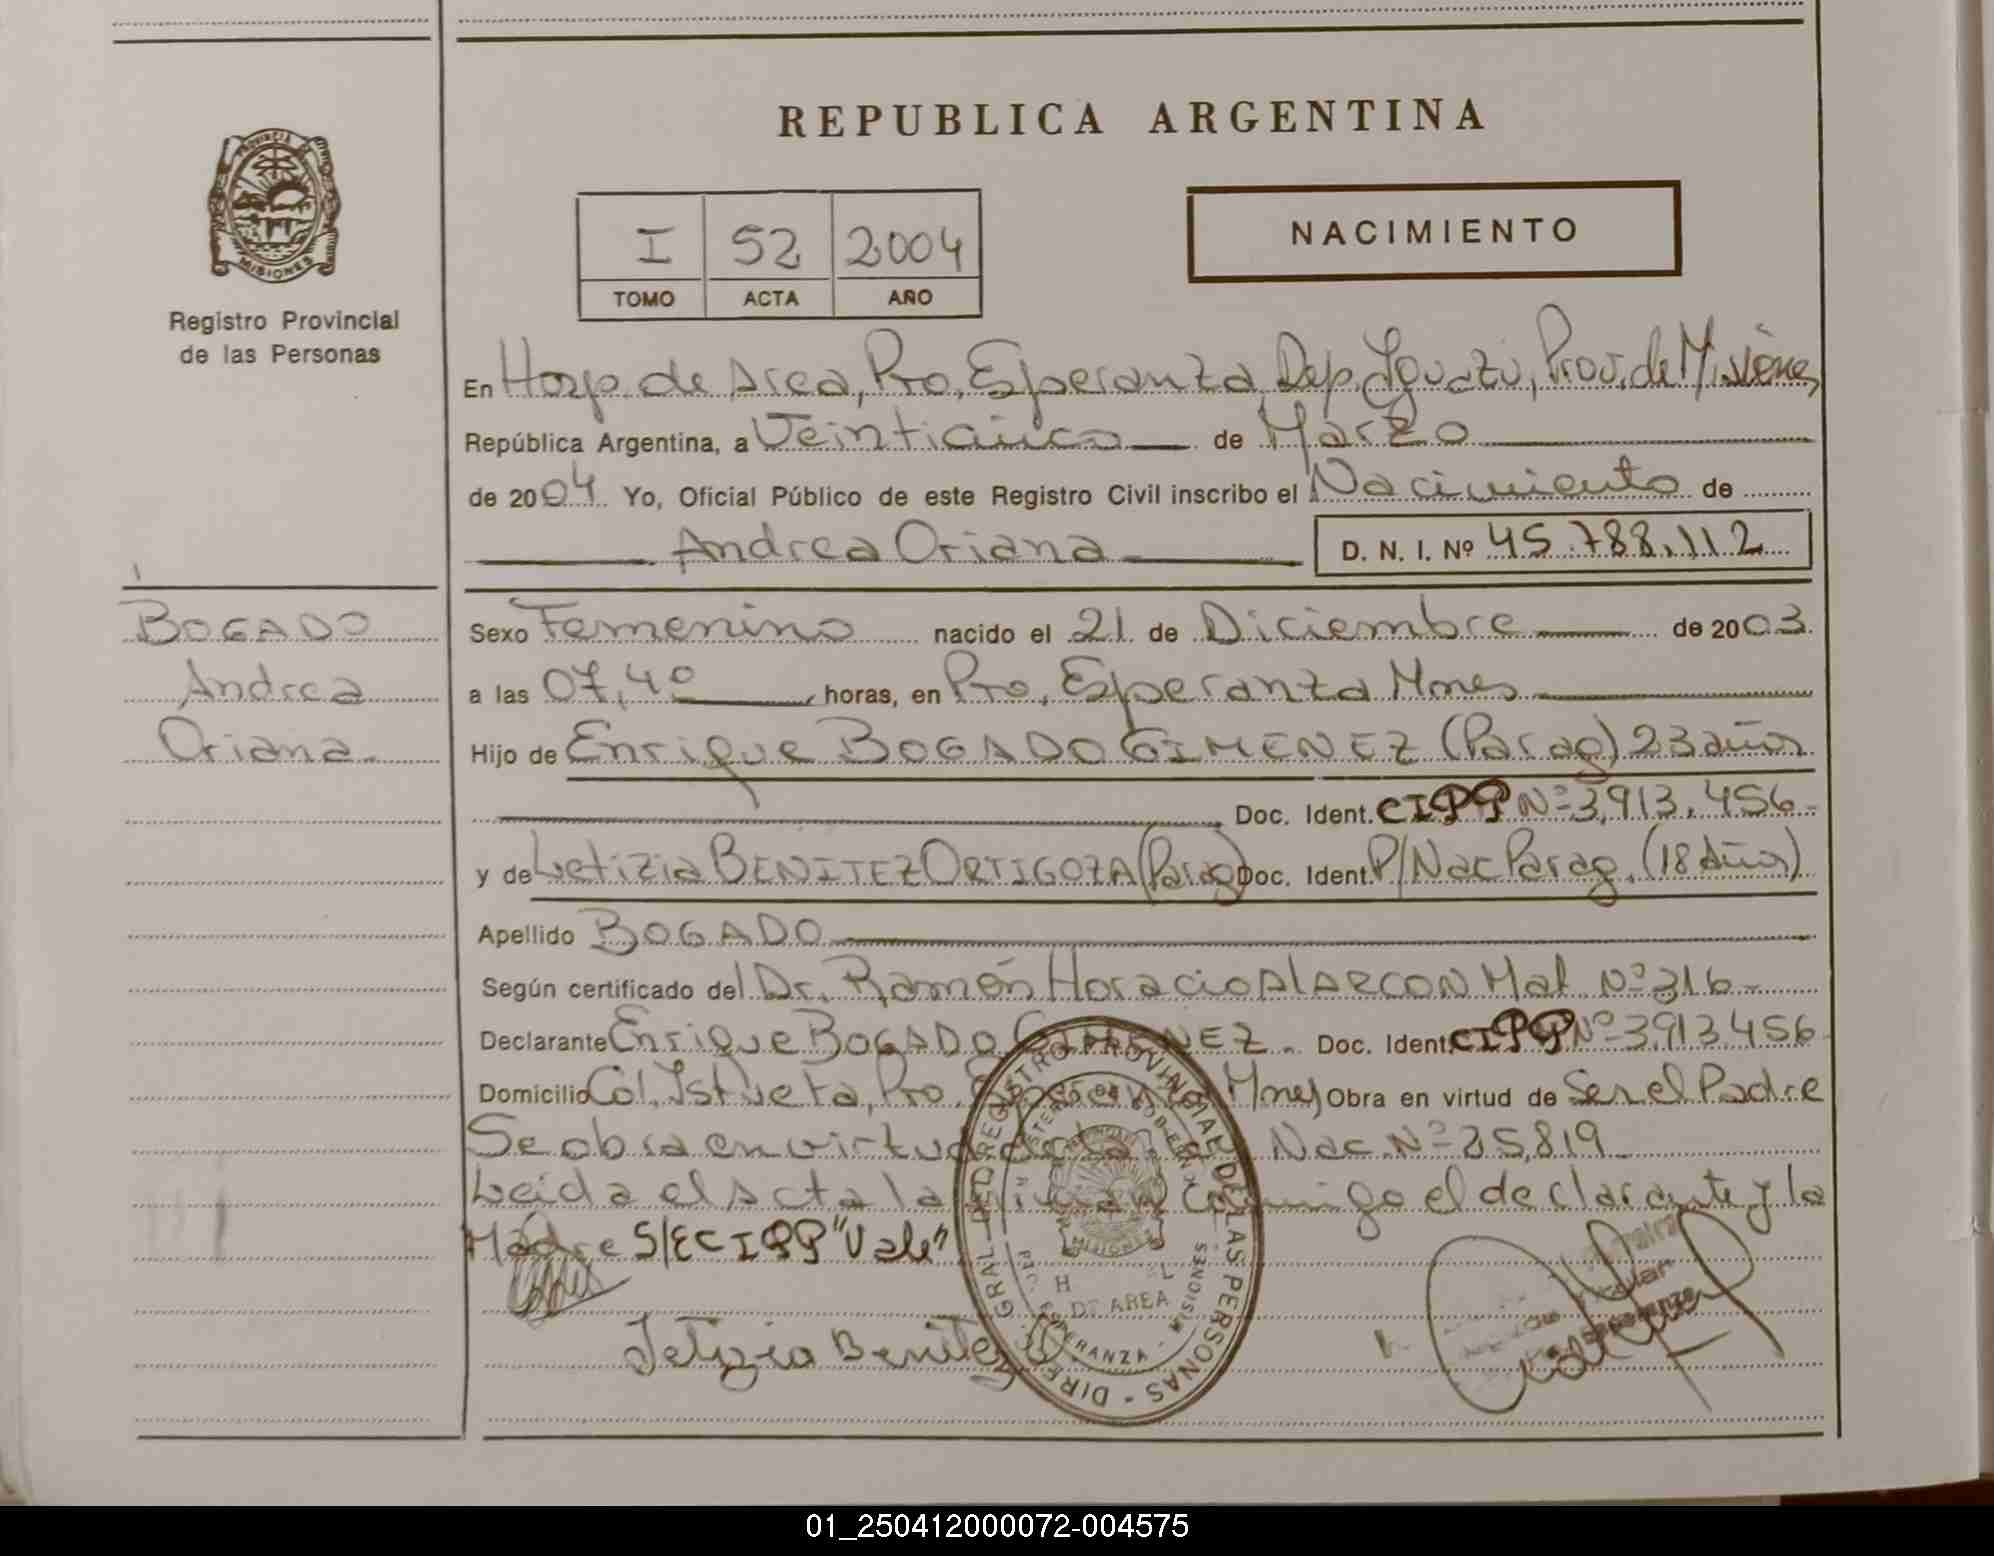 REPUBLICA ARGENTINA
PROVINCIA DE
MISIONES
Registro Provincial
de las Personas
I 52 2004
TOMO ACTA AÑO
NACIMIENTO
En Hosp. de Area, Pto, Esperanza Dep. Iguazú, Prov. de Misiones
República Argentina, a Veinticinco de Marzo
de 2004 Yo, Oficial Público de este Registro Civil inscribo el Nacimiento de
Andrea Oriana D. N. I. Nº 45.788.112
BOGADO
Andrea
Oriana
Sexo Femenino nacido el 21 de Diciembre de 2003
a las 07,40 horas, en Pto. Esperanza Mnes
Hijo de Enrique BOGADO GIMENEZ (Parag) 23 años
Doc. Ident. CIPP Nº 3,913.456
y de Letizia BENITEZ ORTIGOZA (Parag) Doc. Ident. P/Nac Parag. (18 años)
Apellido BOGADO
Según certificado del Dr. Ramón Horacio AlARCON Mat. Nº 316
Declarante Enrique BOGADO GIMENEZ. Doc. Ident. CIPP Nº 3,913.456
Domicilio Col. Istueta, Pto. Esperanza Mnes Obra en virtud de Ser el Padre
Se obra en virtud de la Ley Nac. Nº 25,819
Leida el Acta la firman conmigo el declarante y la
Madre S/E CIPP "Vale"
Letizia Benitez
DIRECCION GRAL. DEL REGISTRO PROVINCIAL DE LAS PERSONAS
DE AREA
ESPERANZA - MISIONES
MISIONES
01_250412000072-004575